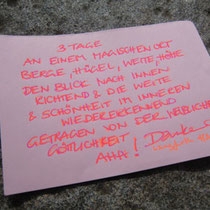 3 TAGE
AN EINEM MAGISCHEN ORT
BERGE, HÜGEL, WEITE, HÖHE
DEN BLICK NACH INNEN
RICHTEND & DIE WEITE
& SCHÖNHEIT IM INNEREN
WIEDERERKENNEND
GETRAGEN VON DER WEIBLICHEN
GÖTTLICHKEIT! Danke
AHA!